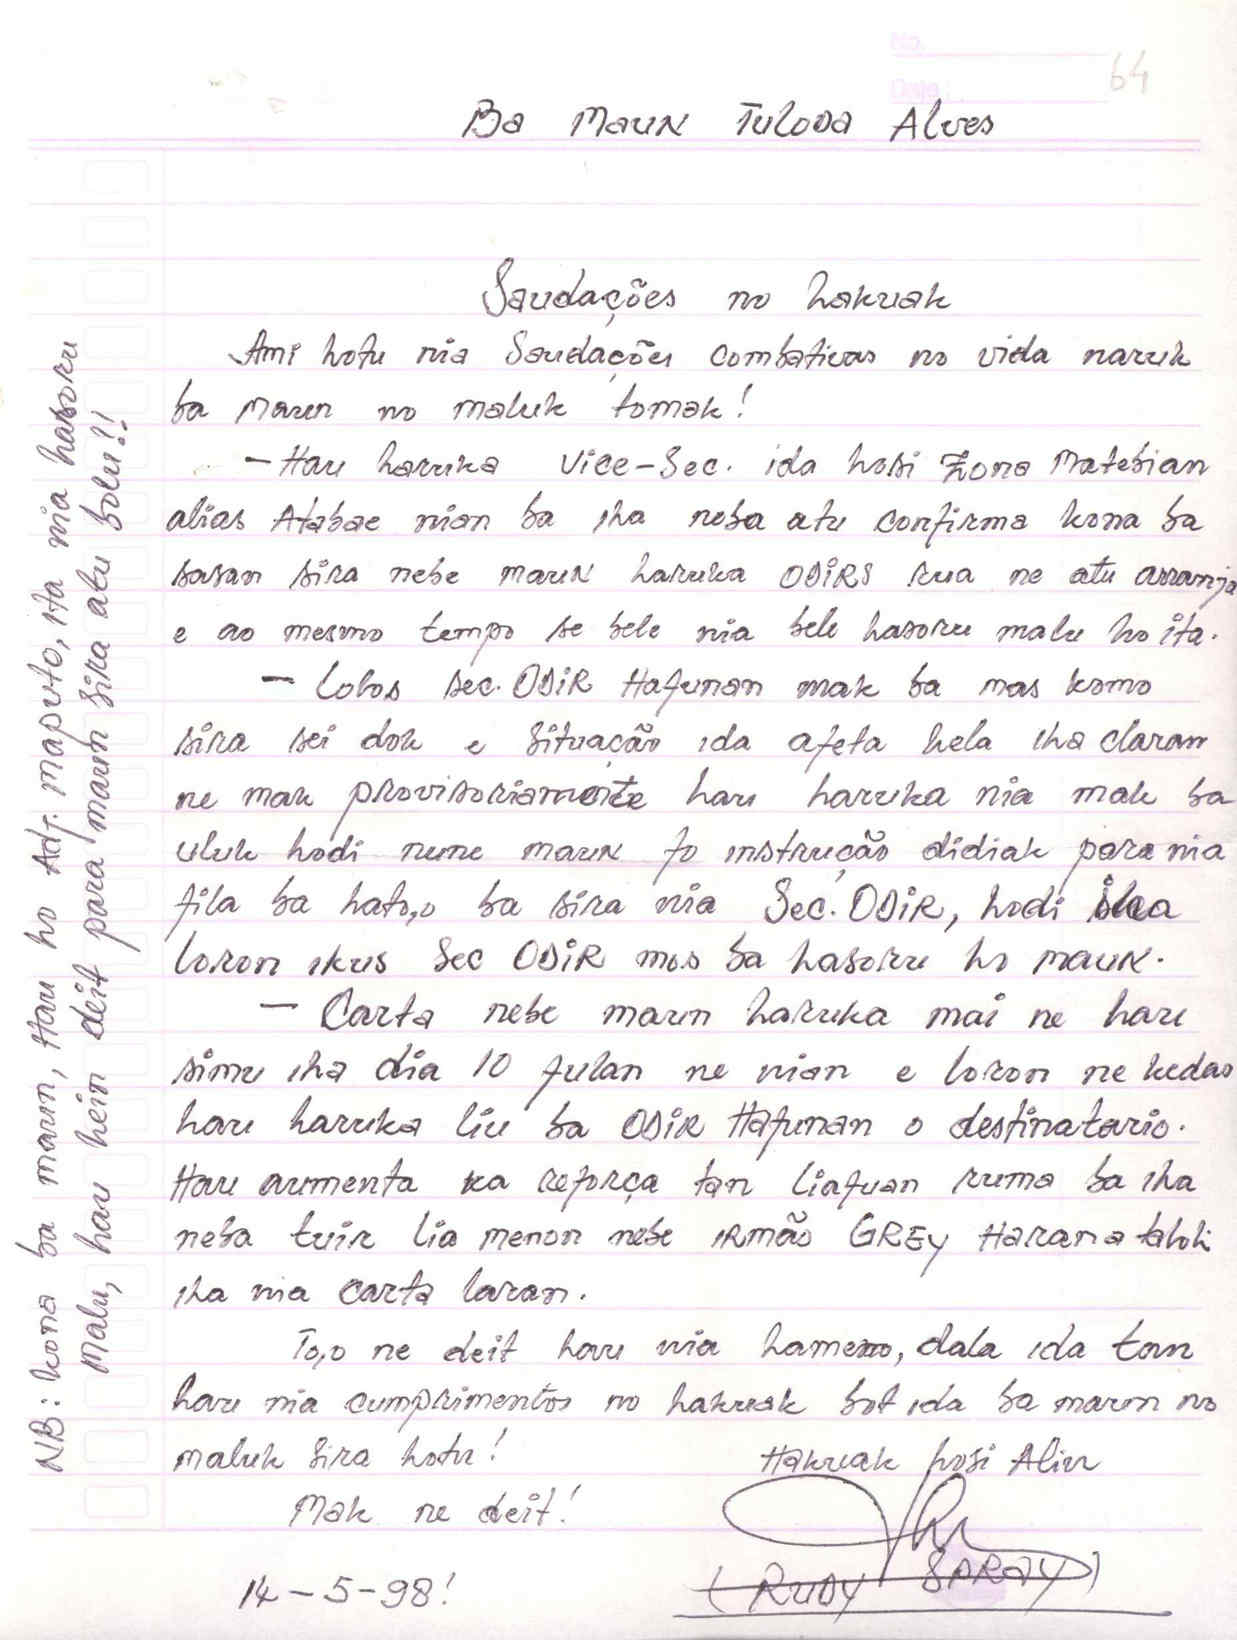 No.
Date:
64
Ba Maun Tuloda Alves
Saudações no hakuak
Ami hotu nia Saudações combativas no vida naruk
ba maun no maluk tomak!
- Hau haruka Vice-Sec. ida hosi Zona Matebian
alias Atabae nian ba iha neba atu confirma kona ba
sasan sira nebe maun haruka ODIRS rua ne atu arranja
e ao mesmo tempo se bele nia bele hasoru malu ho ita.
- Lolos sec. ODIR Hafunan mak ba mas komo
sira sei dok e situação ida afeta hela iha claran
ne mak provisoriamente hau haruka nia mak ba
uluk hodi nune maun fo instrução didiak para nia
fila ba hato,o ba sira nia Sec. ODIR, hodi iha
loron ikus Sec ODIR mos ba hasoru ho maun.
- Carta nebe maun haruka mai ne hau
simu iha dia 10 fulan ne nian e loron ne kedas
hau haruka liu ba ODIR Hafunan o destinatario.
Hau aumenta ka reforça tan liafuan ruma ba iha
neba tuir lia menon nebe irmão GREY Harana
iha nia carta laran.
To,o ne deit hau nia hameno, dala ida tan
hau nia cumprimentos no hakuak bot ida ba maun no
maluk sira hotu!
Hakuak hosi Alin
Mak ne deit!
(RUDY SARAY)
14-5-98!
NB: kona ba maun, Hau ho Adj. Maputo, ita nia hasoru
malu, hau hein deit para maun sira atu bolu!!